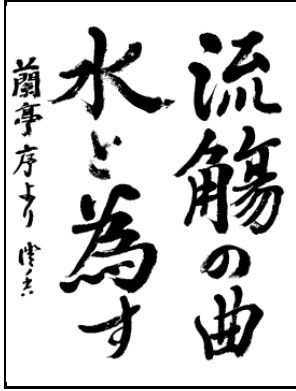 流觴の曲
水と為す
蘭亭序より